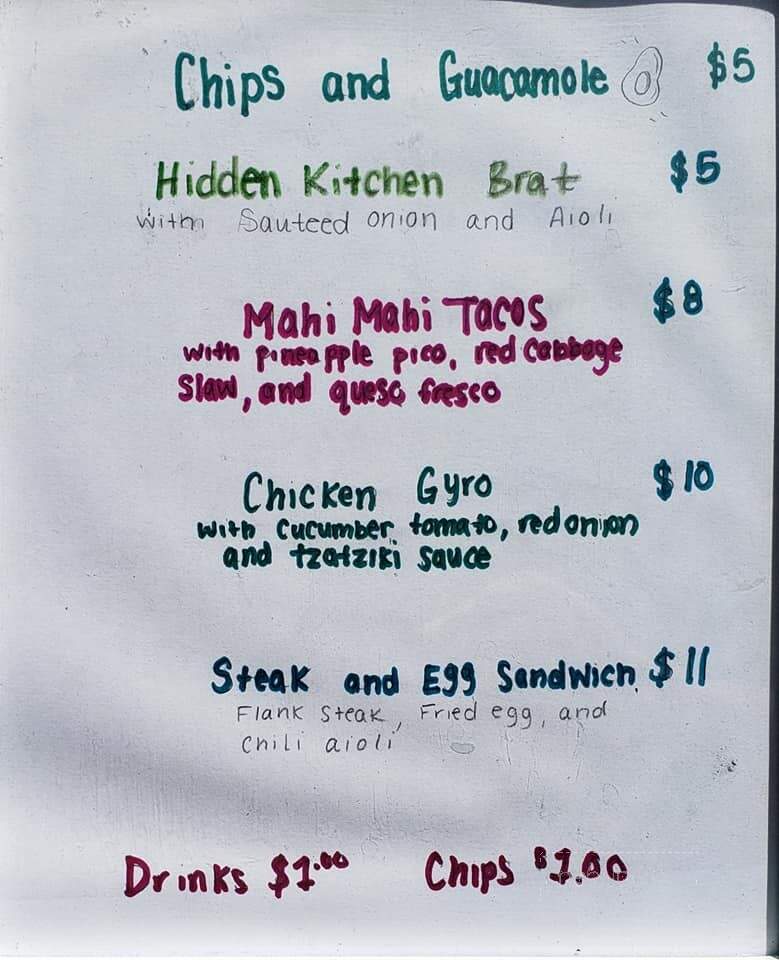 Chips and Guacamole $5
Hidden Kitchen Brat $5
with Sauteed onion and Aioli
Mahi Mahi Tacos $8
with pineapple pico, red cabbage
slaw, and queso fresco
Chicken Gyro $10
with cucumber, tomato, red onion
and tzatziki sauce
Steak and Egg Sandwich $11
Flank Steak, Fried egg, and
chili aioli
Drinks $1.00 Chips $1.00